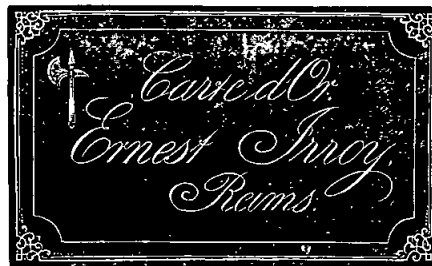 Carte d'Or
Ernest Irroy.
Reims.